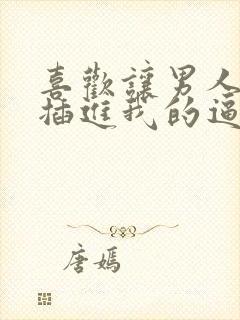 喜歡讓男人
插進我的逼
唐嫣